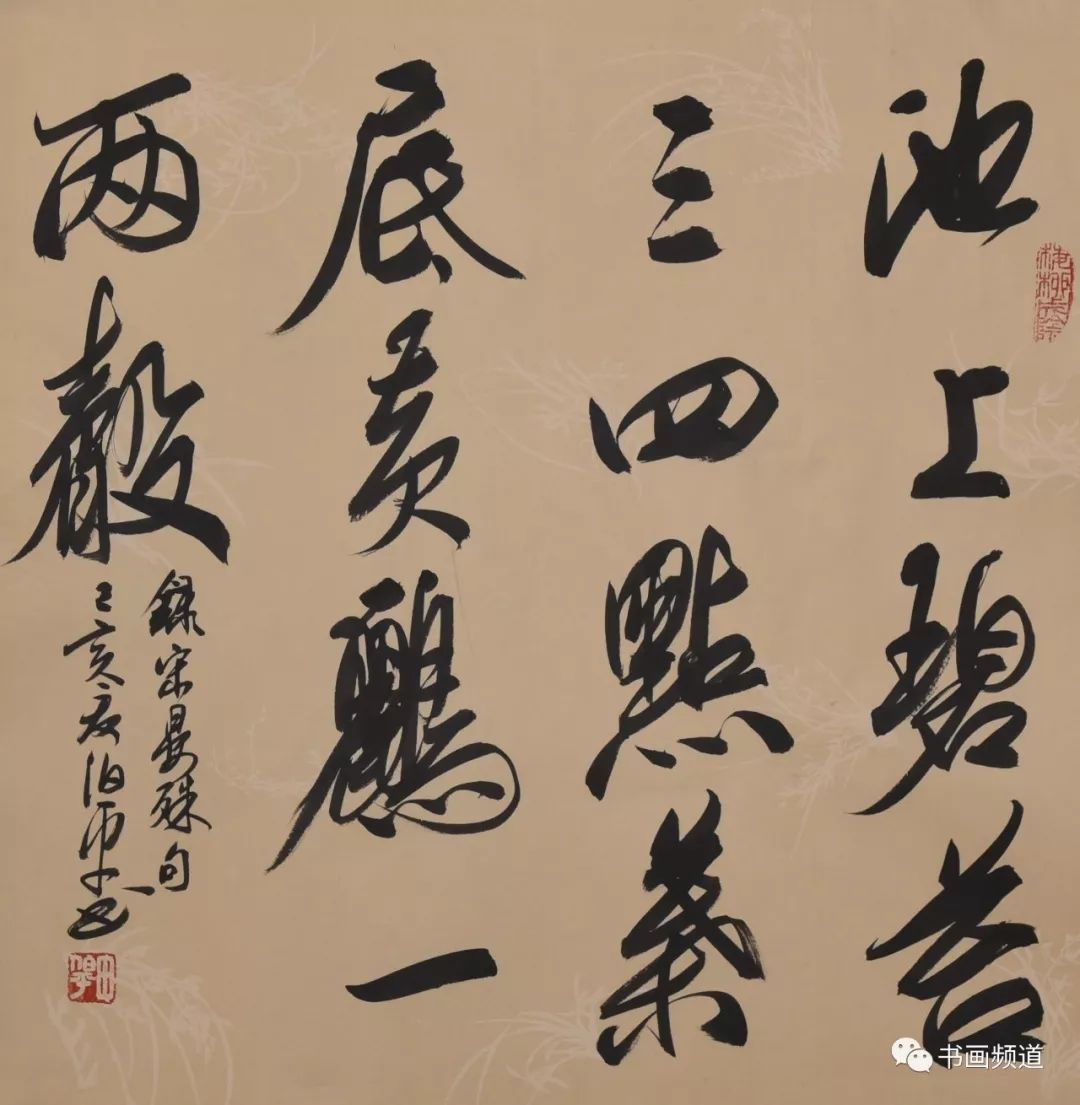 池上碧苔
三四點葉
底黄鸝一
两聲
錄宋晏殊句
己亥夏伯平书
书画频道